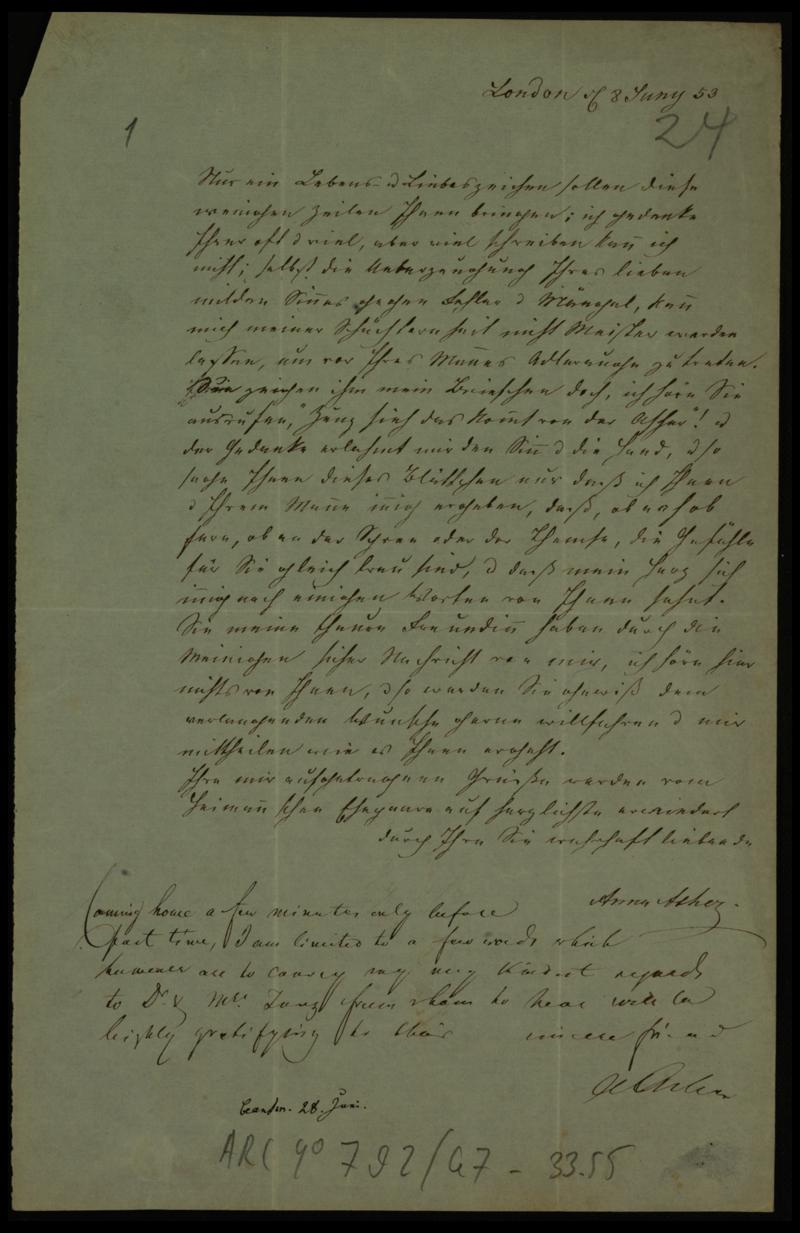 London d 8 Juny 53
1
24
Nur ein Lebens- u Liebeszeichen sollen diese
wenigen Zeilen Ihnen bringen; ich gedenke
Ihrer oft u viel, aber viel schreiben kan̄ ich
nicht; selbst die Ueberzeugung Ihres lieben
milden Sin̄es gegen Fehler u Mängel, kan̄
mich meiner Schüchternheit nicht Meister werden
lassen, um vor Ihres Man̄es Adlerauge zu treten.
Sie zeigen ihm mein Briefchen doch, ich höre Sie
ausrufen, "Zunz sieh das kom̄t von der Asher"! u
der Gedanke erlahmt mir den Sin̄ u die Hand, u so
sage Ihnen dieses Blättchen nur daß ich Ihnen
u Ihrem Man̄e in̄ig ergeben, daß, ob nah ob
fern, ob an der Spree oder der Themse, die Gefühle
für Sie gleich treu sind, u daß mein Herz sich
in̄ig nach einigen Worten von Ihnen sehnt.
Sie meine theure Freundin̄ haben durch die
Meinigen sicher Nachricht von mir, ich höre hier
nichts von Ihnen, u so werden Sie gewiß dem
verlangenden Wunsche gerne willfahren u mir
mittheilen wie es Ihnen ergeht.
Ihre mir aufgetragenen Grüße werden vom
Heiman̄schen Ehepaare auf herzlichste erwiedert
durch Ihre Sie wahrhaft liebende
Anna Asher.
Coming home a few minutes only before
post time, I am limited to a few words which
however are to convey my very kindest regards
to Dr. & Mrs. Zunz from whom to hear will be
highly gratifying to their sincere friend
A Asher
beantw. 28. Juni.
ARC 4o 792/G7 - 33.55